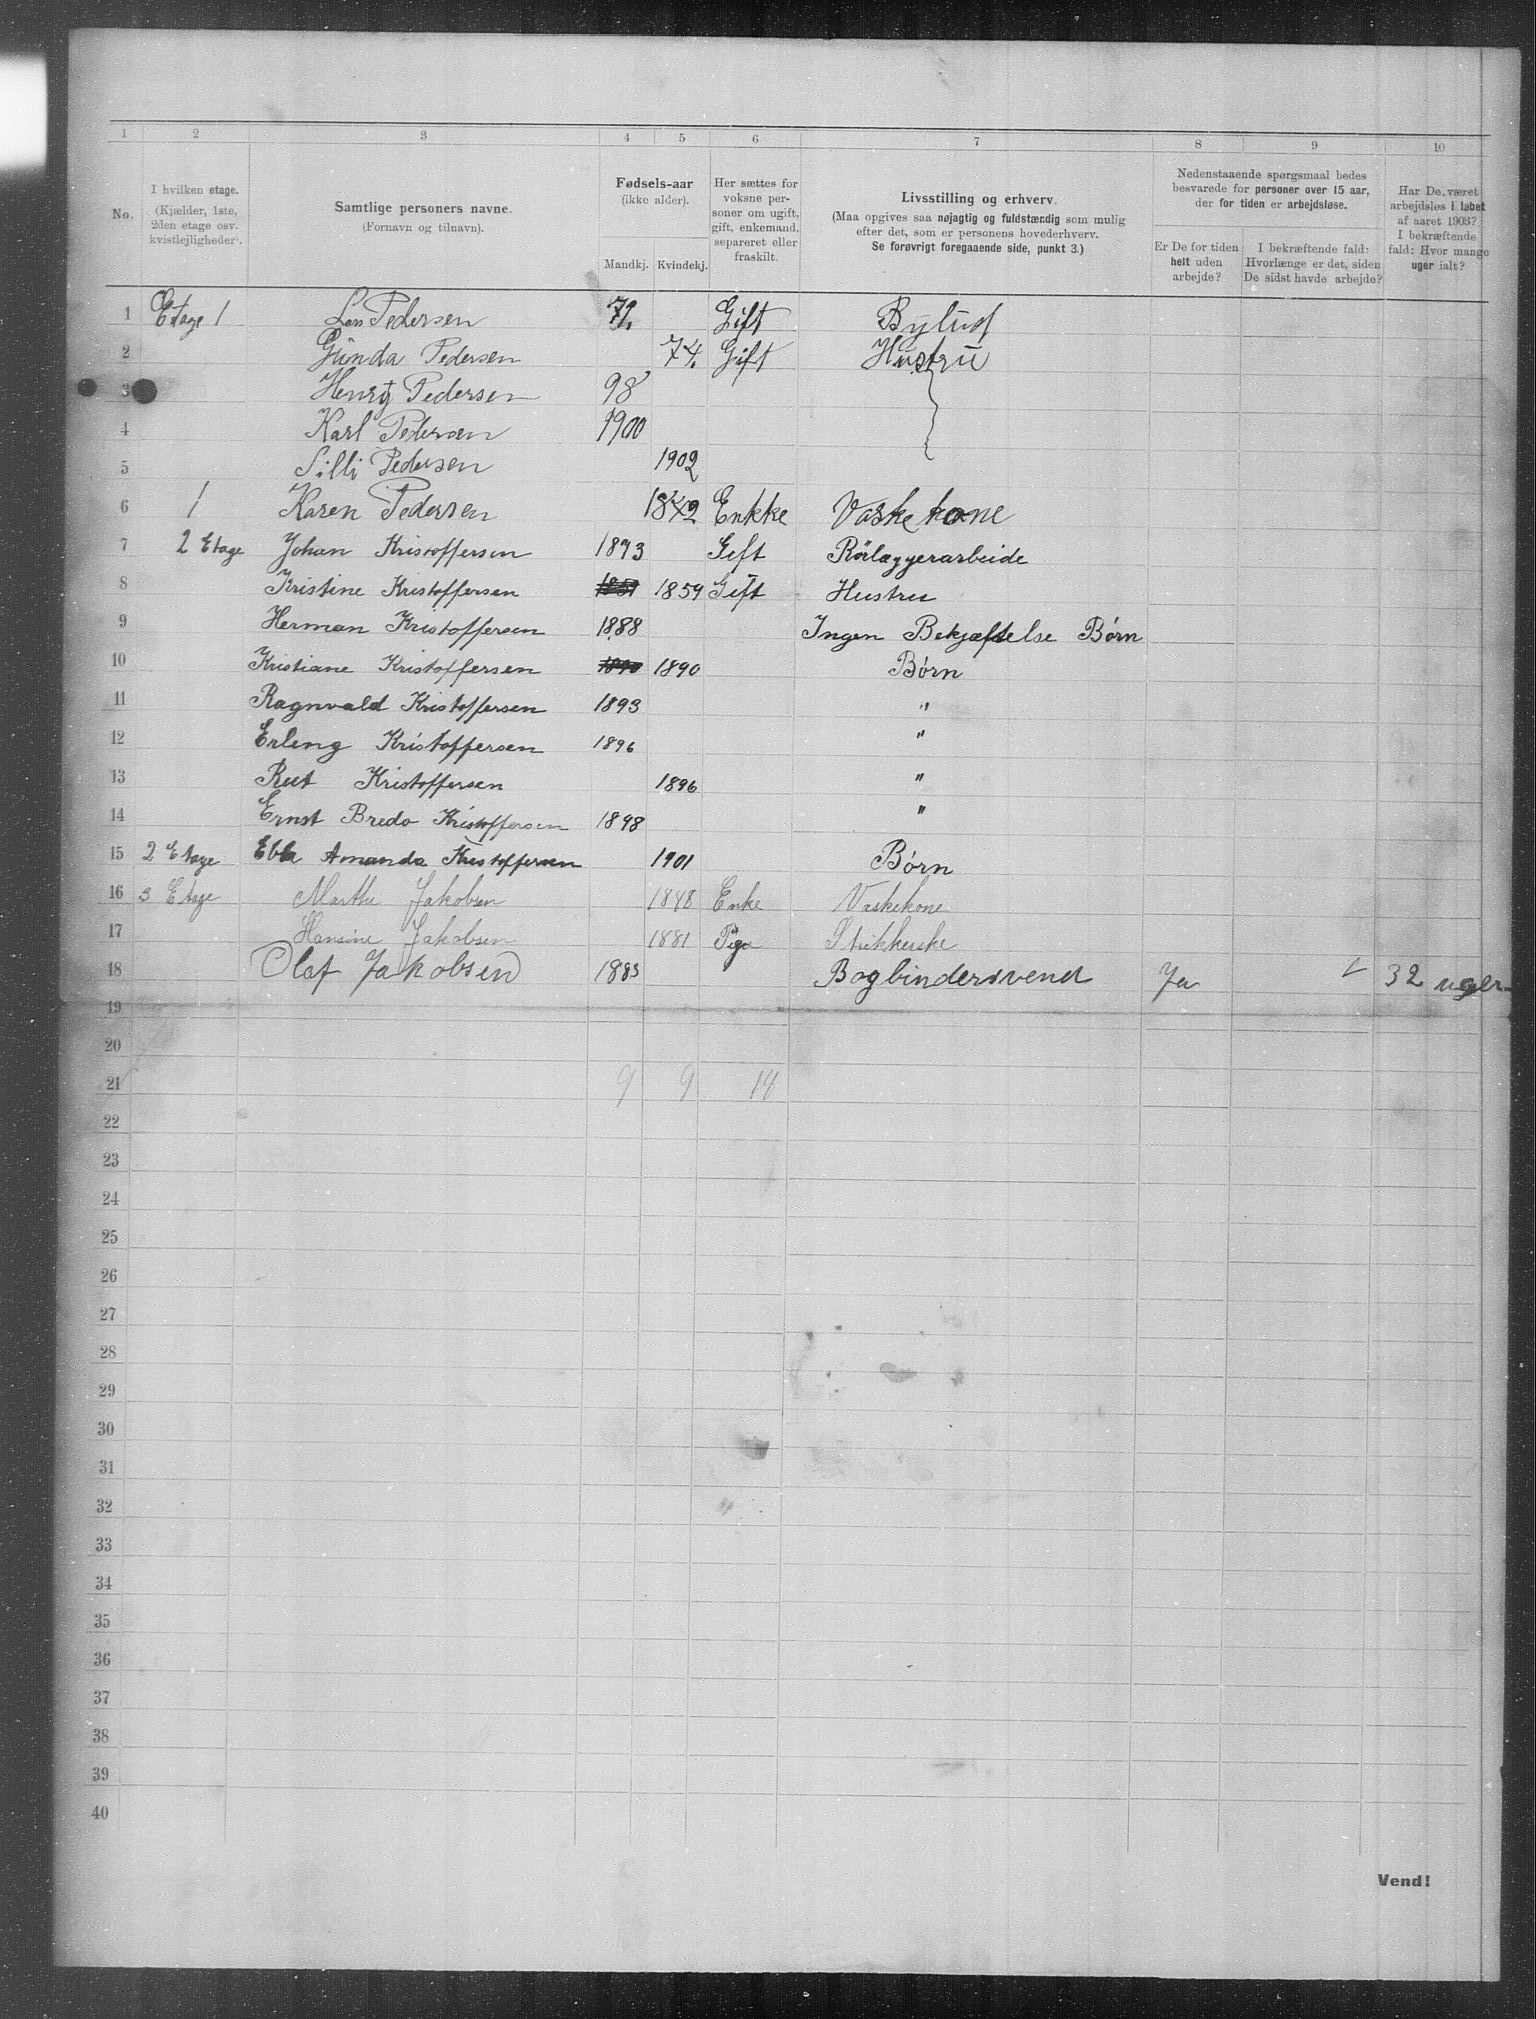 1 2 3 4 5 6 7 8 9 10
No.
I hvilken etage.
(Kjælder, 1ste,
2den etage osv.
kvistlejligheder).
Samtlige personers navne.
(Fornavn og tilnavn).
Fødsels-aar
(ikke alder).
Mandkj. Kvindekj.
Her sættes for
voksne per-
soner om ugift,
gift, enkemand,
separeret eller
fraskilt.
Livsstilling og erhverv.
(Maa opgives saa nøjagtig og fuldstændig som mulig
efter det, som er personens hovederhverv.
Se forøvrigt foregaaende side, punkt 3.)
Nedenstaaende spørgsmaal bedes
besvarede for personer over 15 aar,
der for tiden er arbejdsløse.
Er De for tiden
helt uden
arbejde?
I bekræftende fald:
Hvorlænge er det, siden
De sidst havde arbejde?
Har De været
arbejdsløs i løbet
af aaret 1903?
I bekræftende
fald: Hvor mange
uger ialt?
1 Etage 1 Pedersen Gift Bylud
2 Gunda Pedersen 74. Gift Hustru
3 Henry Pedersen 98
4 Karl Pedersen 1900
5 Silli Pedersen 1902
6 1 Karen Pedersen 1842 Enkke Vaskekone
7 2 Etage Johan Kristoffersen Gift Rørlæggerarbeide
8 Kristine Kristoffersen 1859 Gift Hustru
9 Herman Kristoffersen 1888 Ingen Bekjæftelse Børn
10 Kristiane Kristoffersen 1890 1890 Børn
11 Ragnvald Kristoffersen 1893 "
12 Erling Kristoffersen 1896 "
13 Rut Kristoffersen 1896 "
14 Ernst Bredo Kristoffersen 1898 "
15 2 Etage Ebba Amanda Kristoffersen 1901 Børn
16 3 Etage Marthe Jakobsen 1848 Enke Vaskekone
17 Hansine Jakobsen 1881 Pige Strikkerske
18 Olaf Jakobsen 1883 Bogbindersvend Ja 32 uger
19
20
21 9 9 14
22
23
24
25
26
27
28
29
30
31
32
33
34
35
36
37
38
39
40
Vend!